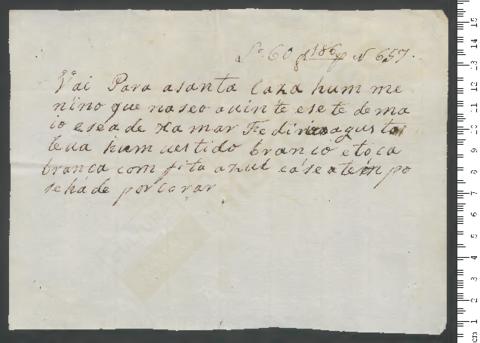 Lº 60 f 186 N 657.
Vai Para asanta Caza hum me
nino que naseo avinte esete dema
io eseade xamar Fredirico agusto
leva hum uestido branco etoca
branca com fita azul cáseatem po
sehade porcorar